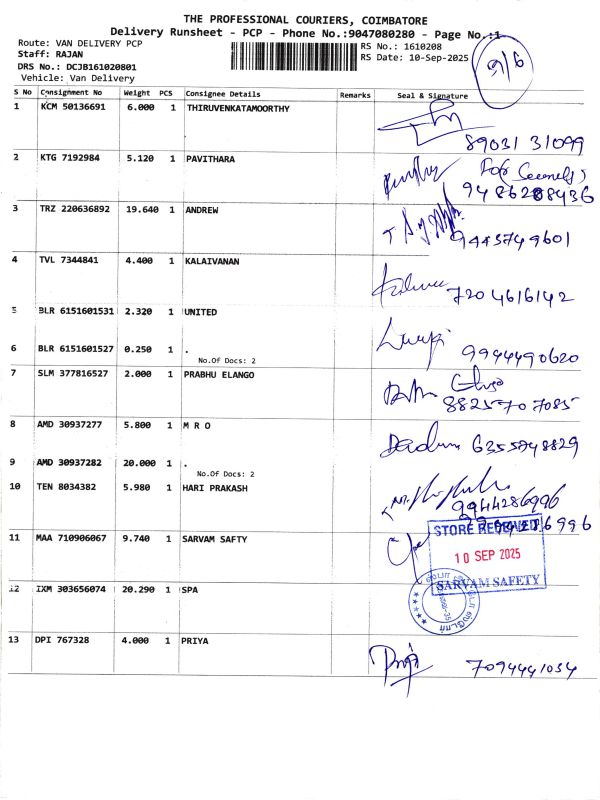 THE PROFESSIONAL COURIERS, COIMBATORE
Delivery Runsheet - PCP - Phone No.:9047080280 - Page No.:1
Route: VAN DELIVERY PCP
Staff: RAJAN
DRS No.: DCJB161020801
Vehicle: Van Delivery
RS No.: 1610208
RS Date: 10-Sep-2025
9/6
S No Consignment No Weight PCS Consignee Details Remarks Seal & Signature
1 KCM 50136691 6.000 1 THIRUVENKATAMOORTHY
89031 31099
2 KTG 7192984 5.120 1 PAVITHARA
9486208436
3 TRZ 220636892 19.640 1 ANDREW
9443749601
4 TVL 7344841 4.400 1 KALAIVANAN
7204616142
5 BLR 6151601531 2.320 1 UNITED
6 BLR 6151601527 0.250 1 .
No.Of Docs: 2
9944490620
7 SLM 377816527 2.000 1 PRABHU ELANGO
Elango
8825707085
8 AMD 30937277 5.800 1 M R O
6355748829
9 AMD 30937282 20.000 1 .
No.Of Docs: 2
10 TEN 8034382 5.980 1 HARI PRAKASH
9944286996
11 MAA 710906067 9.740 1 SARVAM SAFTY
STORE RECEIVED
10 SEP 2025
SARVAM SAFETY
12 IXM 303656074 20.290 1 SPA
13 DPI 767328 4.000 1 PRIYA
7094441034